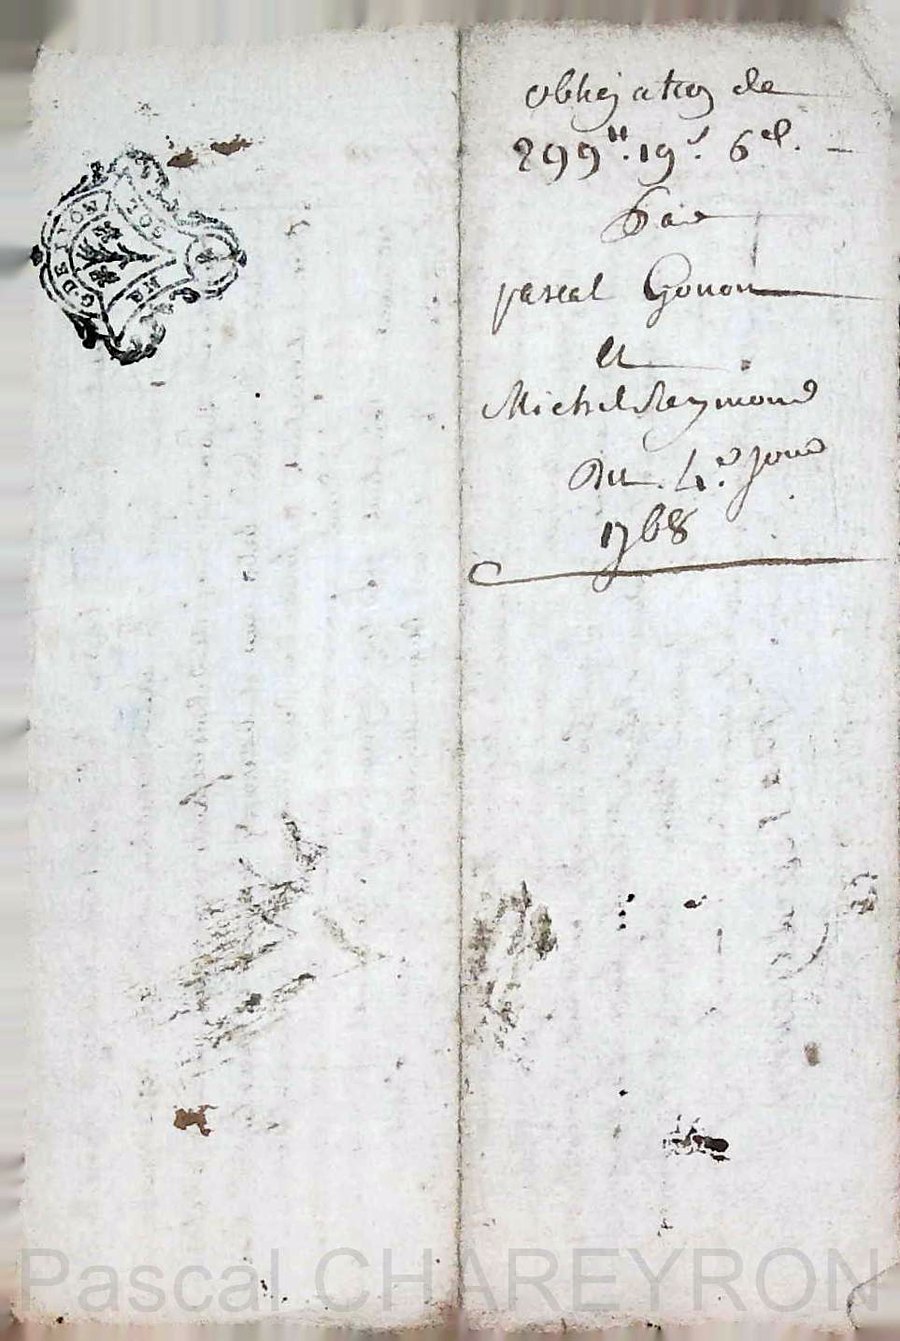 G. DE LYON
obligation de
299tt. 19s. 6d.
pascal Gonon
et
Michel Reymond
Du 4e
1768
Pascal CHAREYRON